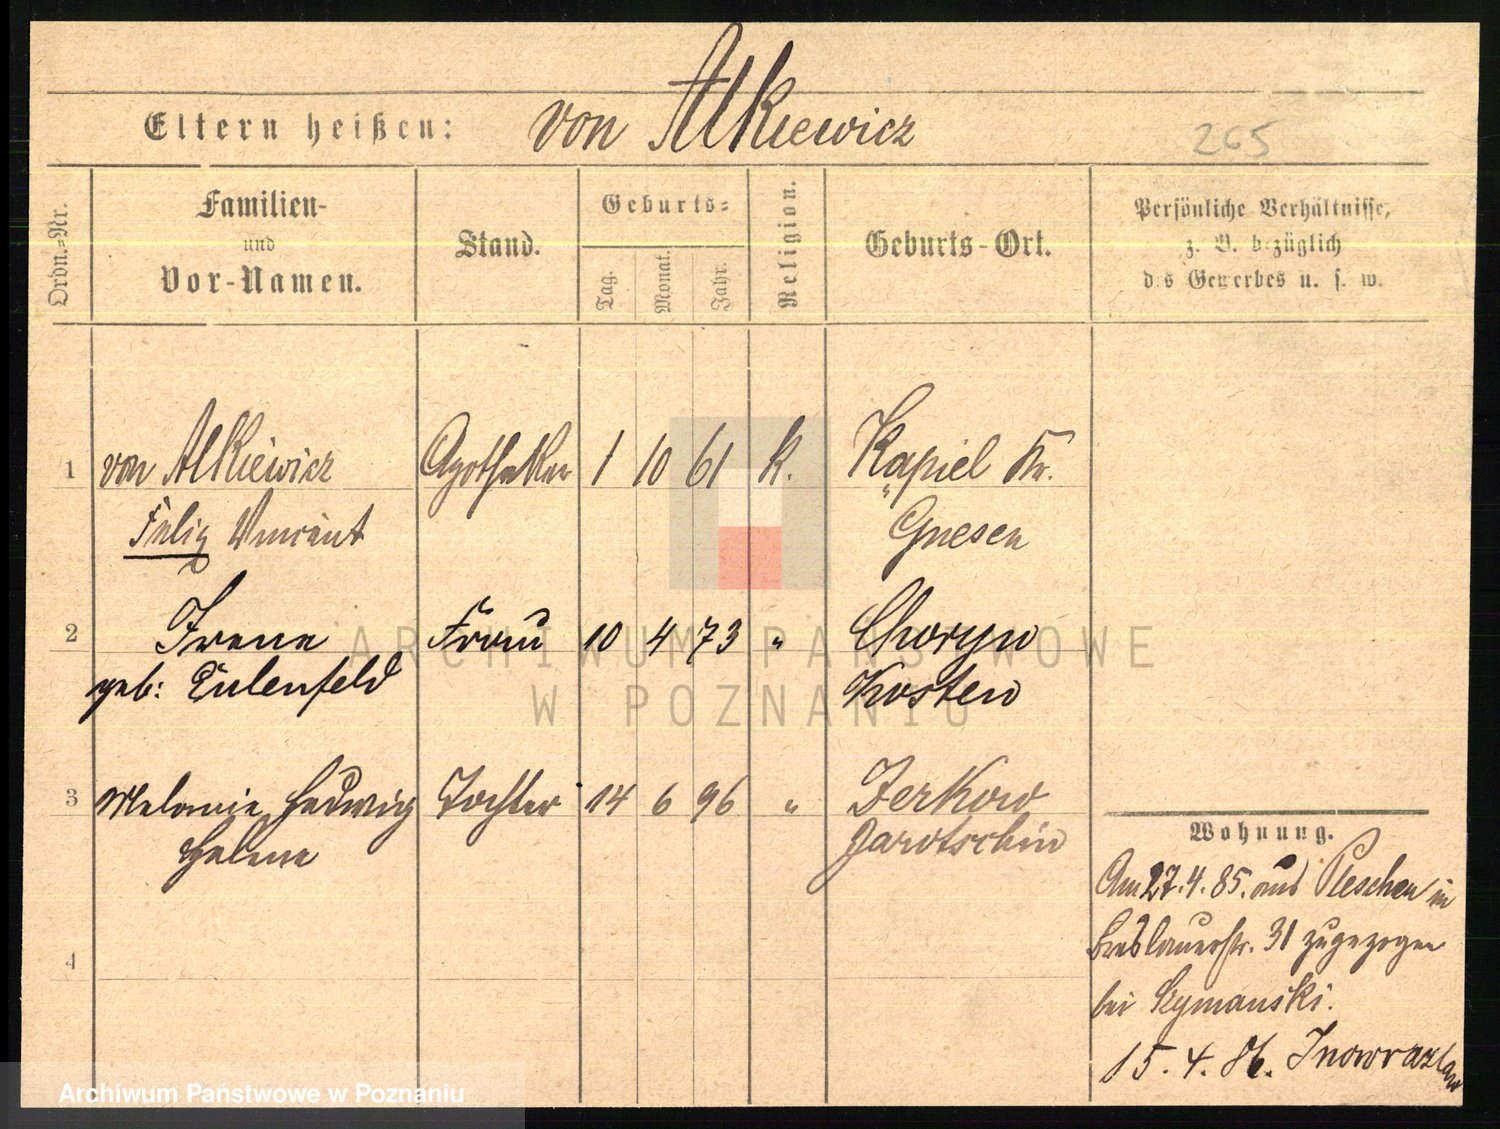 Eltern heißen: von Alkiewicz
265
Ordn.-Nr.
Familien-
und
Vor-Namen.
Stand.
Geburts-
Tag.
Monat.
Jahr.
Religion.
Geburts-Ort.
Persönliche Verhältnisse,
z. B. bezüglich
des Gewerbes u. s. w.
1 von Alkiewicz Apotheker 1 10 61 k. Kapiel Kr.
Felix Vincent Gnesen
2 Irene Frau 10 4 73 " Choryn
geb: Eulenfeld Kosten
3 Melanie Hedwig Tochter 14 6 96 " Zerkow
Helene Jarotschin
4
Wohnung.
Am 27.4.85. aus Pleschen in
Breslauerstr. 31 zugezogen
bei Szymanski.
15.4.86. Inowrazlaw
ARCHIWUM PAŃSTWOWE
W POZNANIU
Archiwum Państwowe w Poznaniu